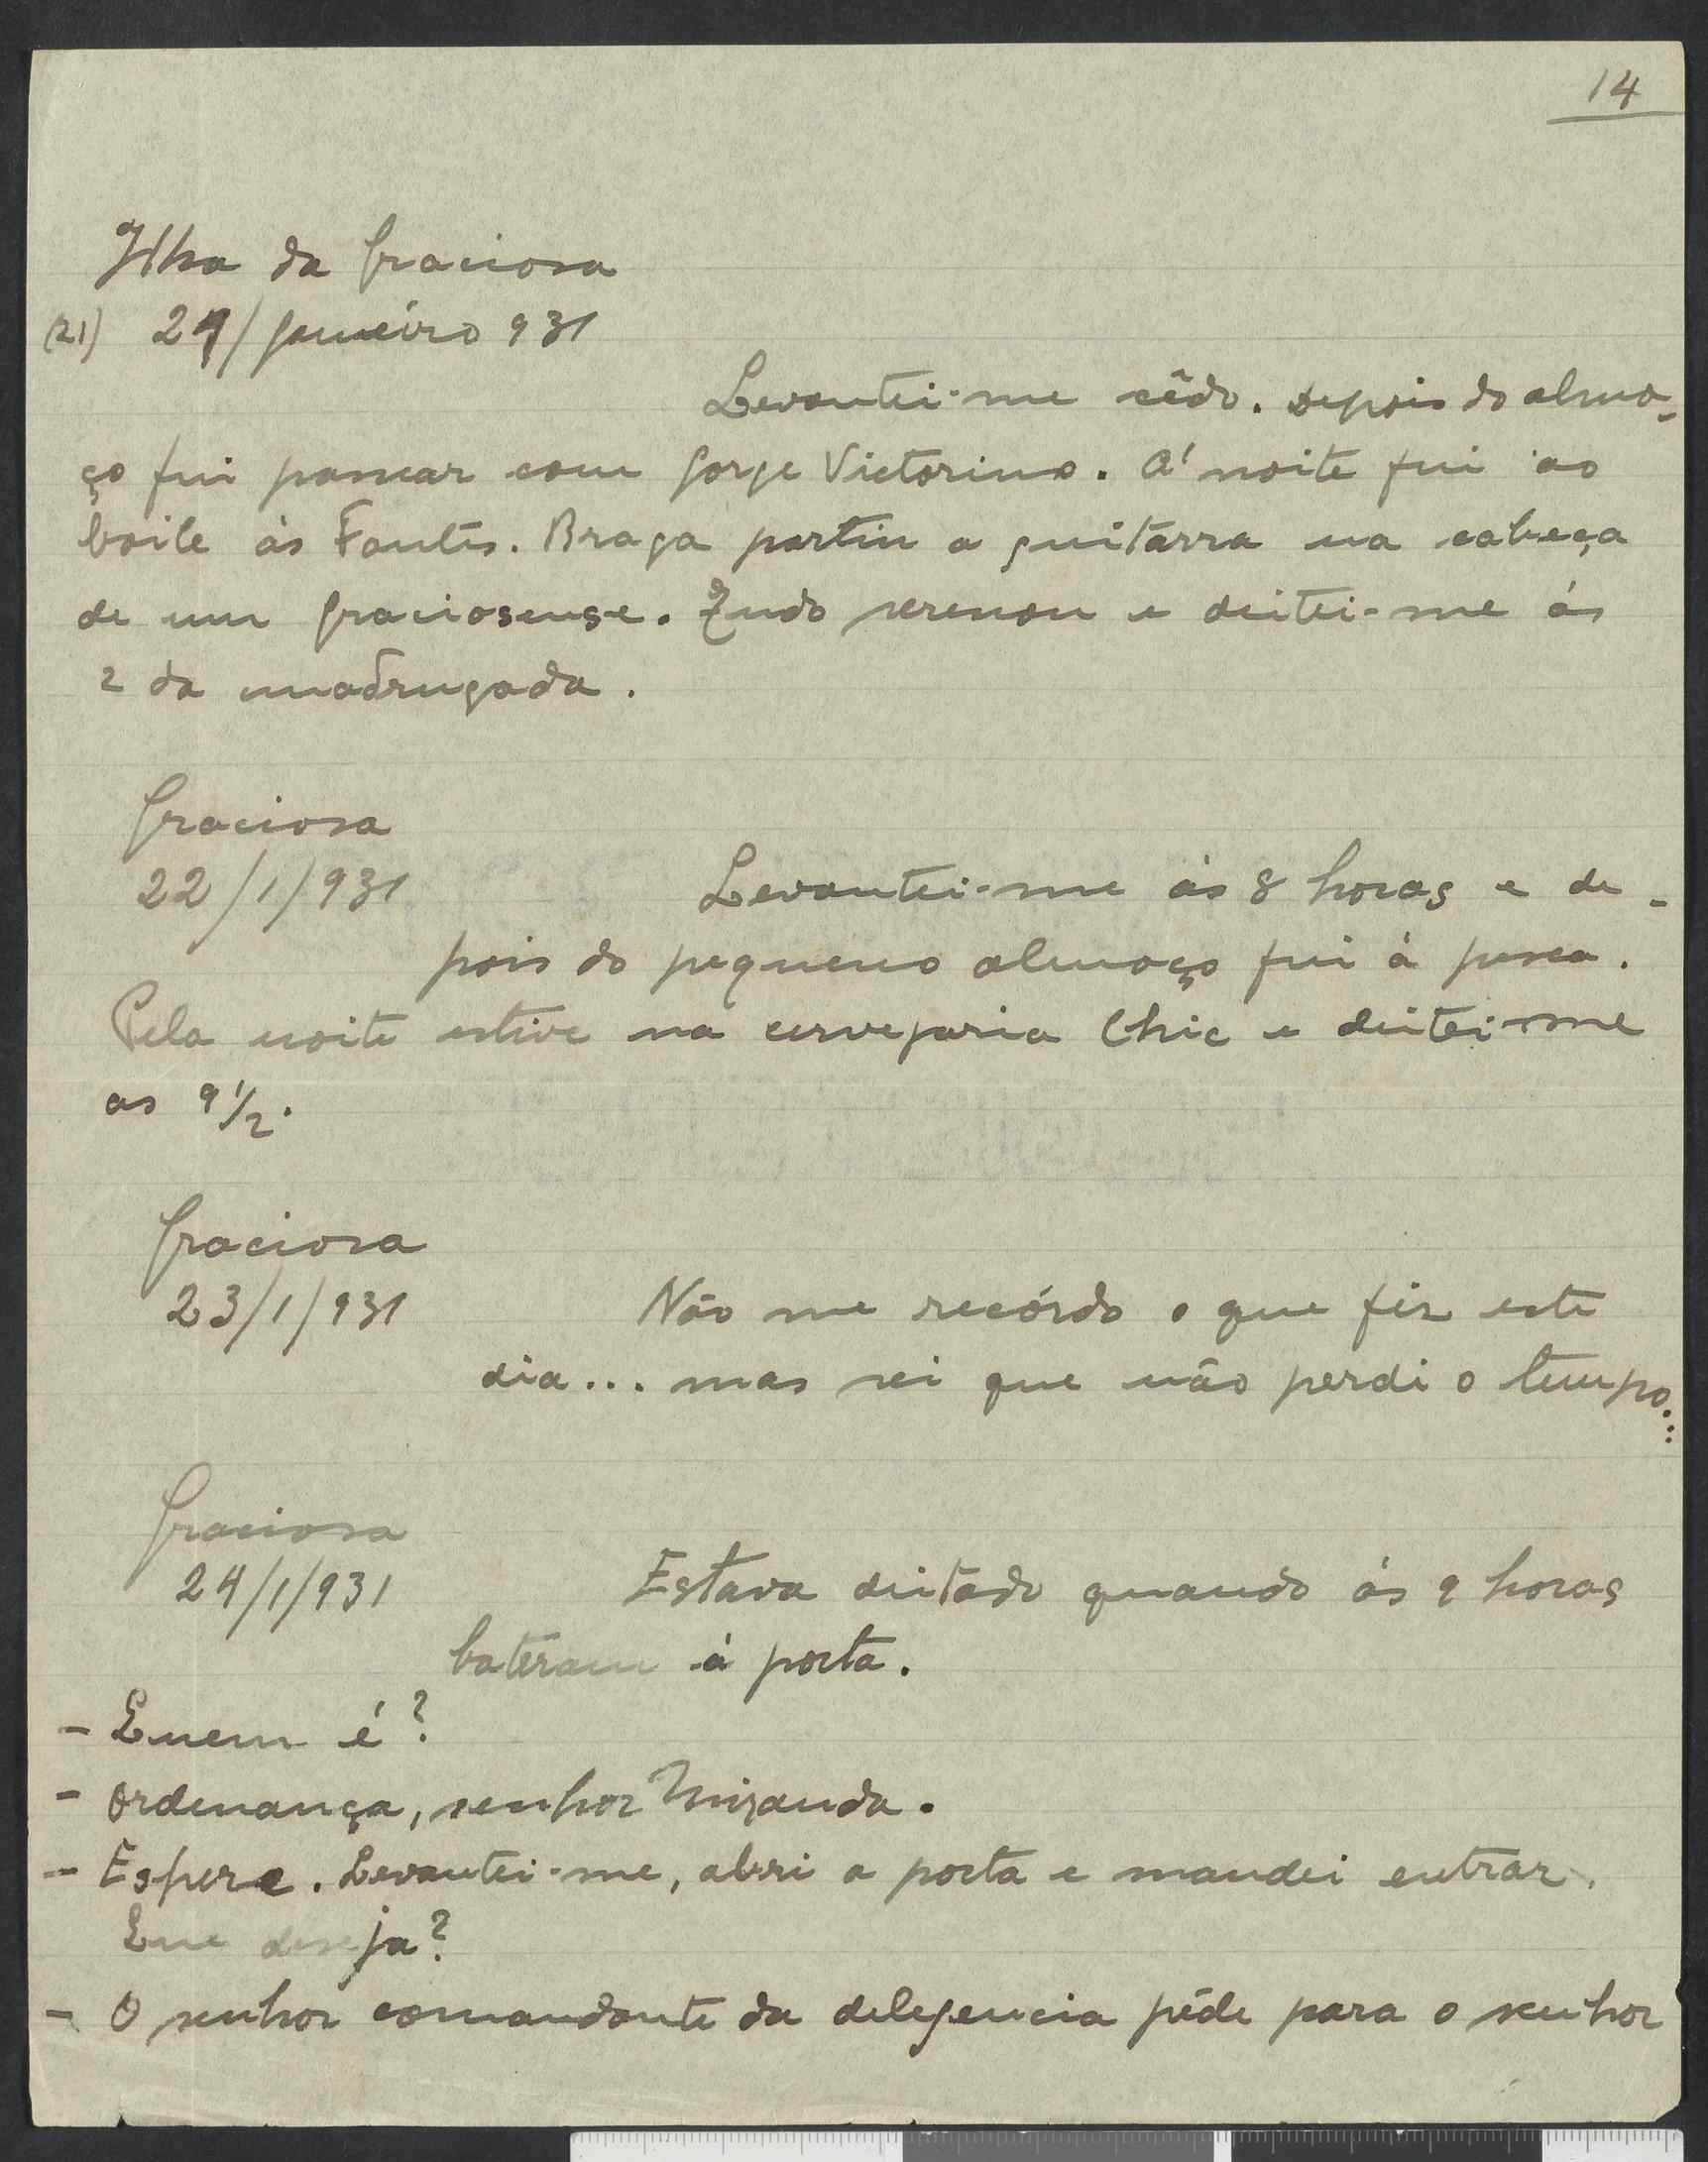 14
Ilha da Graciosa
(21) 29/Janeiro 931
Levantei-me cêdo. Depois do almo-
ço fui passear com Jorge Victorino. Á noite fui ao
baile ás Fontes. Braga partiu a guitarra na cabeça
de um graciosense. Tudo serenou e deitei-me ás
2 da madrugada.
Graciosa
22/1/931
Levantei-me ás 8 horas e de-
pois do pequeno almoço fui á pesca.
Pela noite estive na cervejaria Chic e deitei-me
as 9 1/2.
Graciosa
23/1/931
Não me recórdo o que fiz este
dia... mas sei que não perdi o tempo...
Graciosa
24/1/931
Estava deitado quando ás 9 horas
bateram á porta.
- Quem é?
- Ordenança, senhor Miranda.
- Espere. Levantei-me, abri a porta e mandei entrar.
Que deseja?
- O senhor comandante da delegencia péde para o senhor